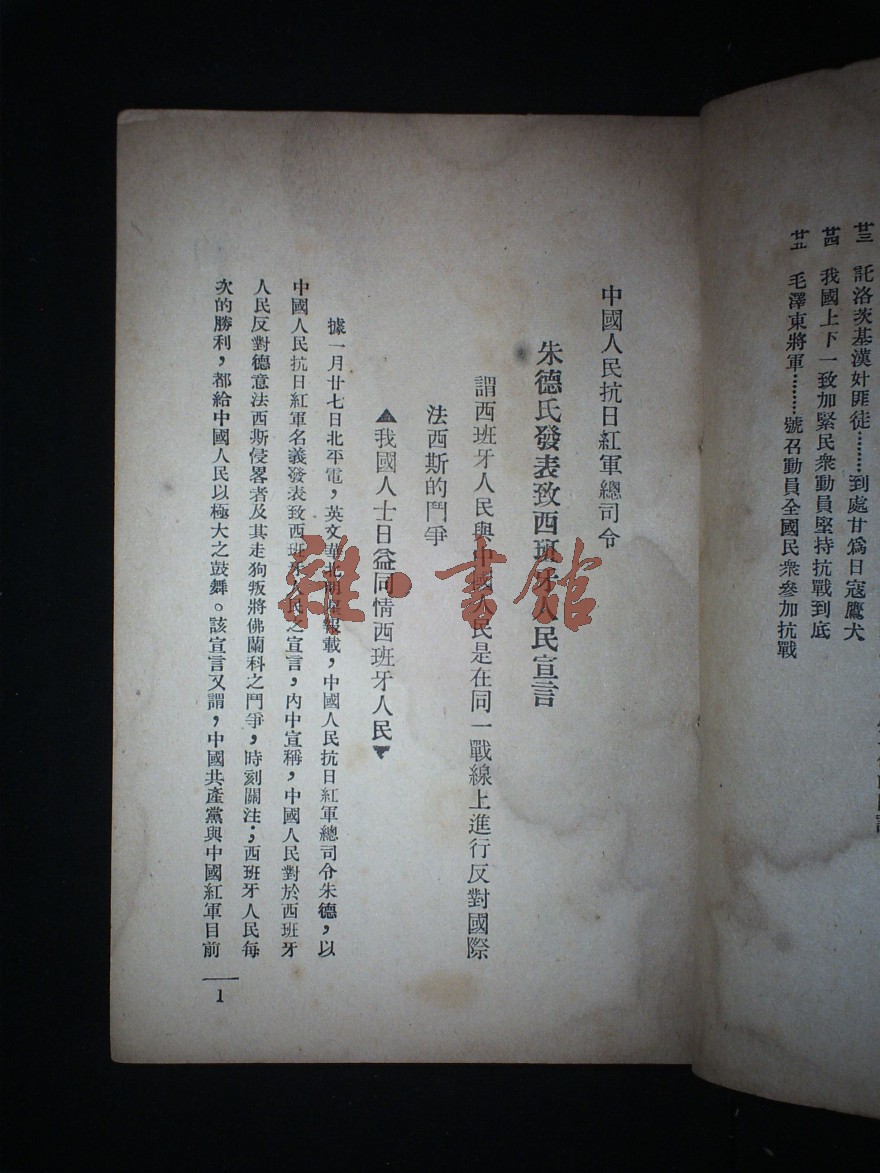 廿三 託洛茨基漢奸匪徒………到處甘爲日寇鷹犬
廿四 我國上下一致加緊民衆動員堅持抗戰到底
廿五 毛澤東將軍………號召動員全國民衆參加抗戰
中國人民抗日紅軍總司令
朱德氏發表致西班牙人民宣言
謂西班牙人民與中國人民是在同一戰線上進行反對國際
法西斯的鬥爭
▲我國人士日益同情西班牙人民▼
據一月廿七日北平電，英文華北明星報載，中國人民抗日紅軍總司令朱德，以
中國人民抗日紅軍名義發表致西班牙人民之宣言，內中宣稱，中國人民對於西班牙
人民反對德意法西斯侵畧者及其走狗叛將佛蘭科之鬥爭，時刻關注；西班牙人民每
次的勝利，都給中國人民以極大之鼓舞。該宣言又謂，中國共產黨與中國紅軍目前
1
雜·書館